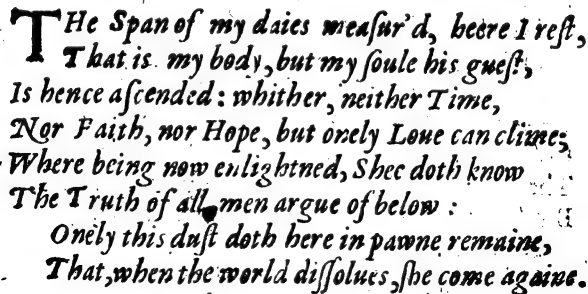 THe Span of my daies measur'd, heere I rest,
That is my body, but my soule his guest,
Is hence ascended: whither, neither Time,
Nor Faith, nor Hope, but onely Loue can clime;
Where being now enlightned, Shee doth know
The Truth of all men argue of below:
Onely this dust doth here in pawne remaine,
That, when the world dissolues, she come againe.